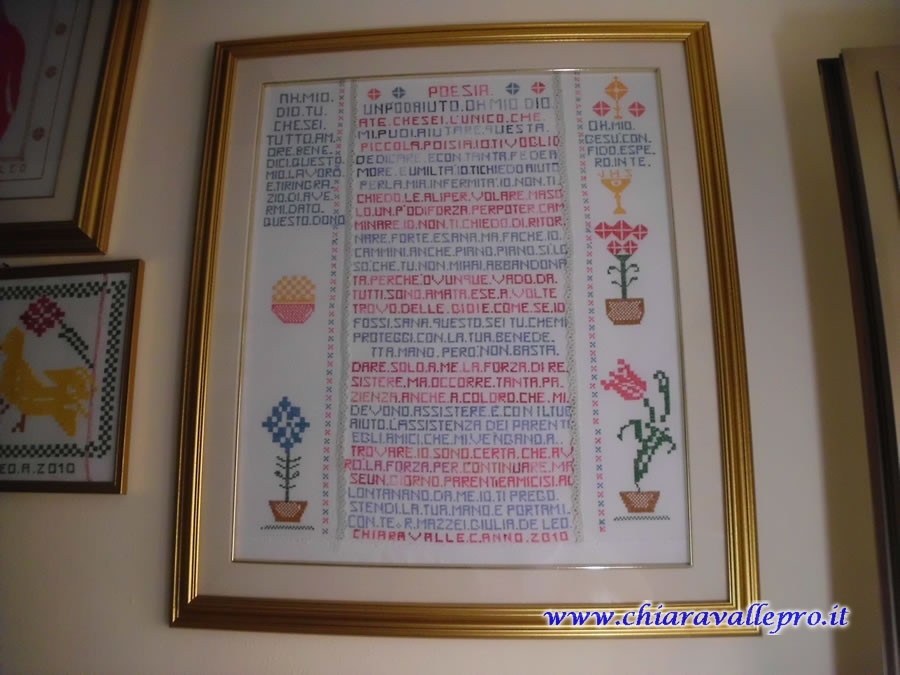 OH.MIO.
DIO.TU.
CHE.SEI.
TUTTO.AM
ORE.BENE.
DICI.QUESTO
MIO.LAVORO
E.TI.RINGRA
ZIO.DI.AVE
RMI.DATO.
QUESTO.DONO
POESIA.
UN.PO.D.AIUTO.OH.MIO.DIO
A.TE.CHE.SEI.L'UNICO.CHE.
MI.PUOI.AIUTARE.QUESTA.
PICCOLA.POISIA.IO.TI.VOGLIO
DEDICARE.E.CON.TANTA.FEDE.A
MORE.E.UMILTA.IO.TI.CHIEDO.AIUTO
PER.LA.MIA.INFERMITA.IO.NON.TI.
CHIEDO.LE.ALI.PER.VOLARE.MA.SO
LO.UN.P'O.DI.FORZA.PER.POTER.CAM
MINARE.IO.NON.TI.CHIEDO.DI.RITOR
NARE.FORTE.E.SANA.MA.FA.CHE.IO.
CAMMINI.ANCHE.PIANO.PIANO.SI.LO
SO.CHE.TU.NON.MI.HAI.ABBANDONA
TA.PERCHE'OVUNQUE.VADO.DA.
TUTTI.SONO.AMATA.E.SE.A.VOLTE
TROVO.DELLE.GIOIE.COME.SE.IO
FOSSI.SANA.QUESTO.SEI.TU.CHE.MI
PROTEGGI.CON.LA.TUA.BENEDE.
TTA.MANO.PERO'NON.BASTA.
DARE.SOLO.A.ME.LA.FORZA.DI.RE
SISTERE.MA.OCCORRE.TANTA.PA
ZIENZA.ANCHE.A.COLORO.CHE.MI.
DEVONO.ASSISTERE.E.CON.IL.TUO
AIUTO.L'ASSISTENZA.DEI.PARENTI
E.GLI.AMICI.CHE.MI.VENGANO.A.
TROVARE.IO.SONO.CERTA.CHE.AV
RO.LA.FORZA.PER.CONTINUARE.MA
SE.UN.GIORNO.PARENTI.E.AMICI.SI.AL
LONTANANO.DA.ME.IO.TI.PREGO.
STENDI.LA.TUA.MANO.E.PORTAMI.
CON.TE.R.MAZZEI.GIULIA.DE.LEO.
CHIARAVALLE.C.ANNO.2010
OH.MIO.
GESU'.CON
FIDO.E.SPE
RO.IN.TE.
J.H.S
EO.A.2010
LEO
www.chiaravallepro.it